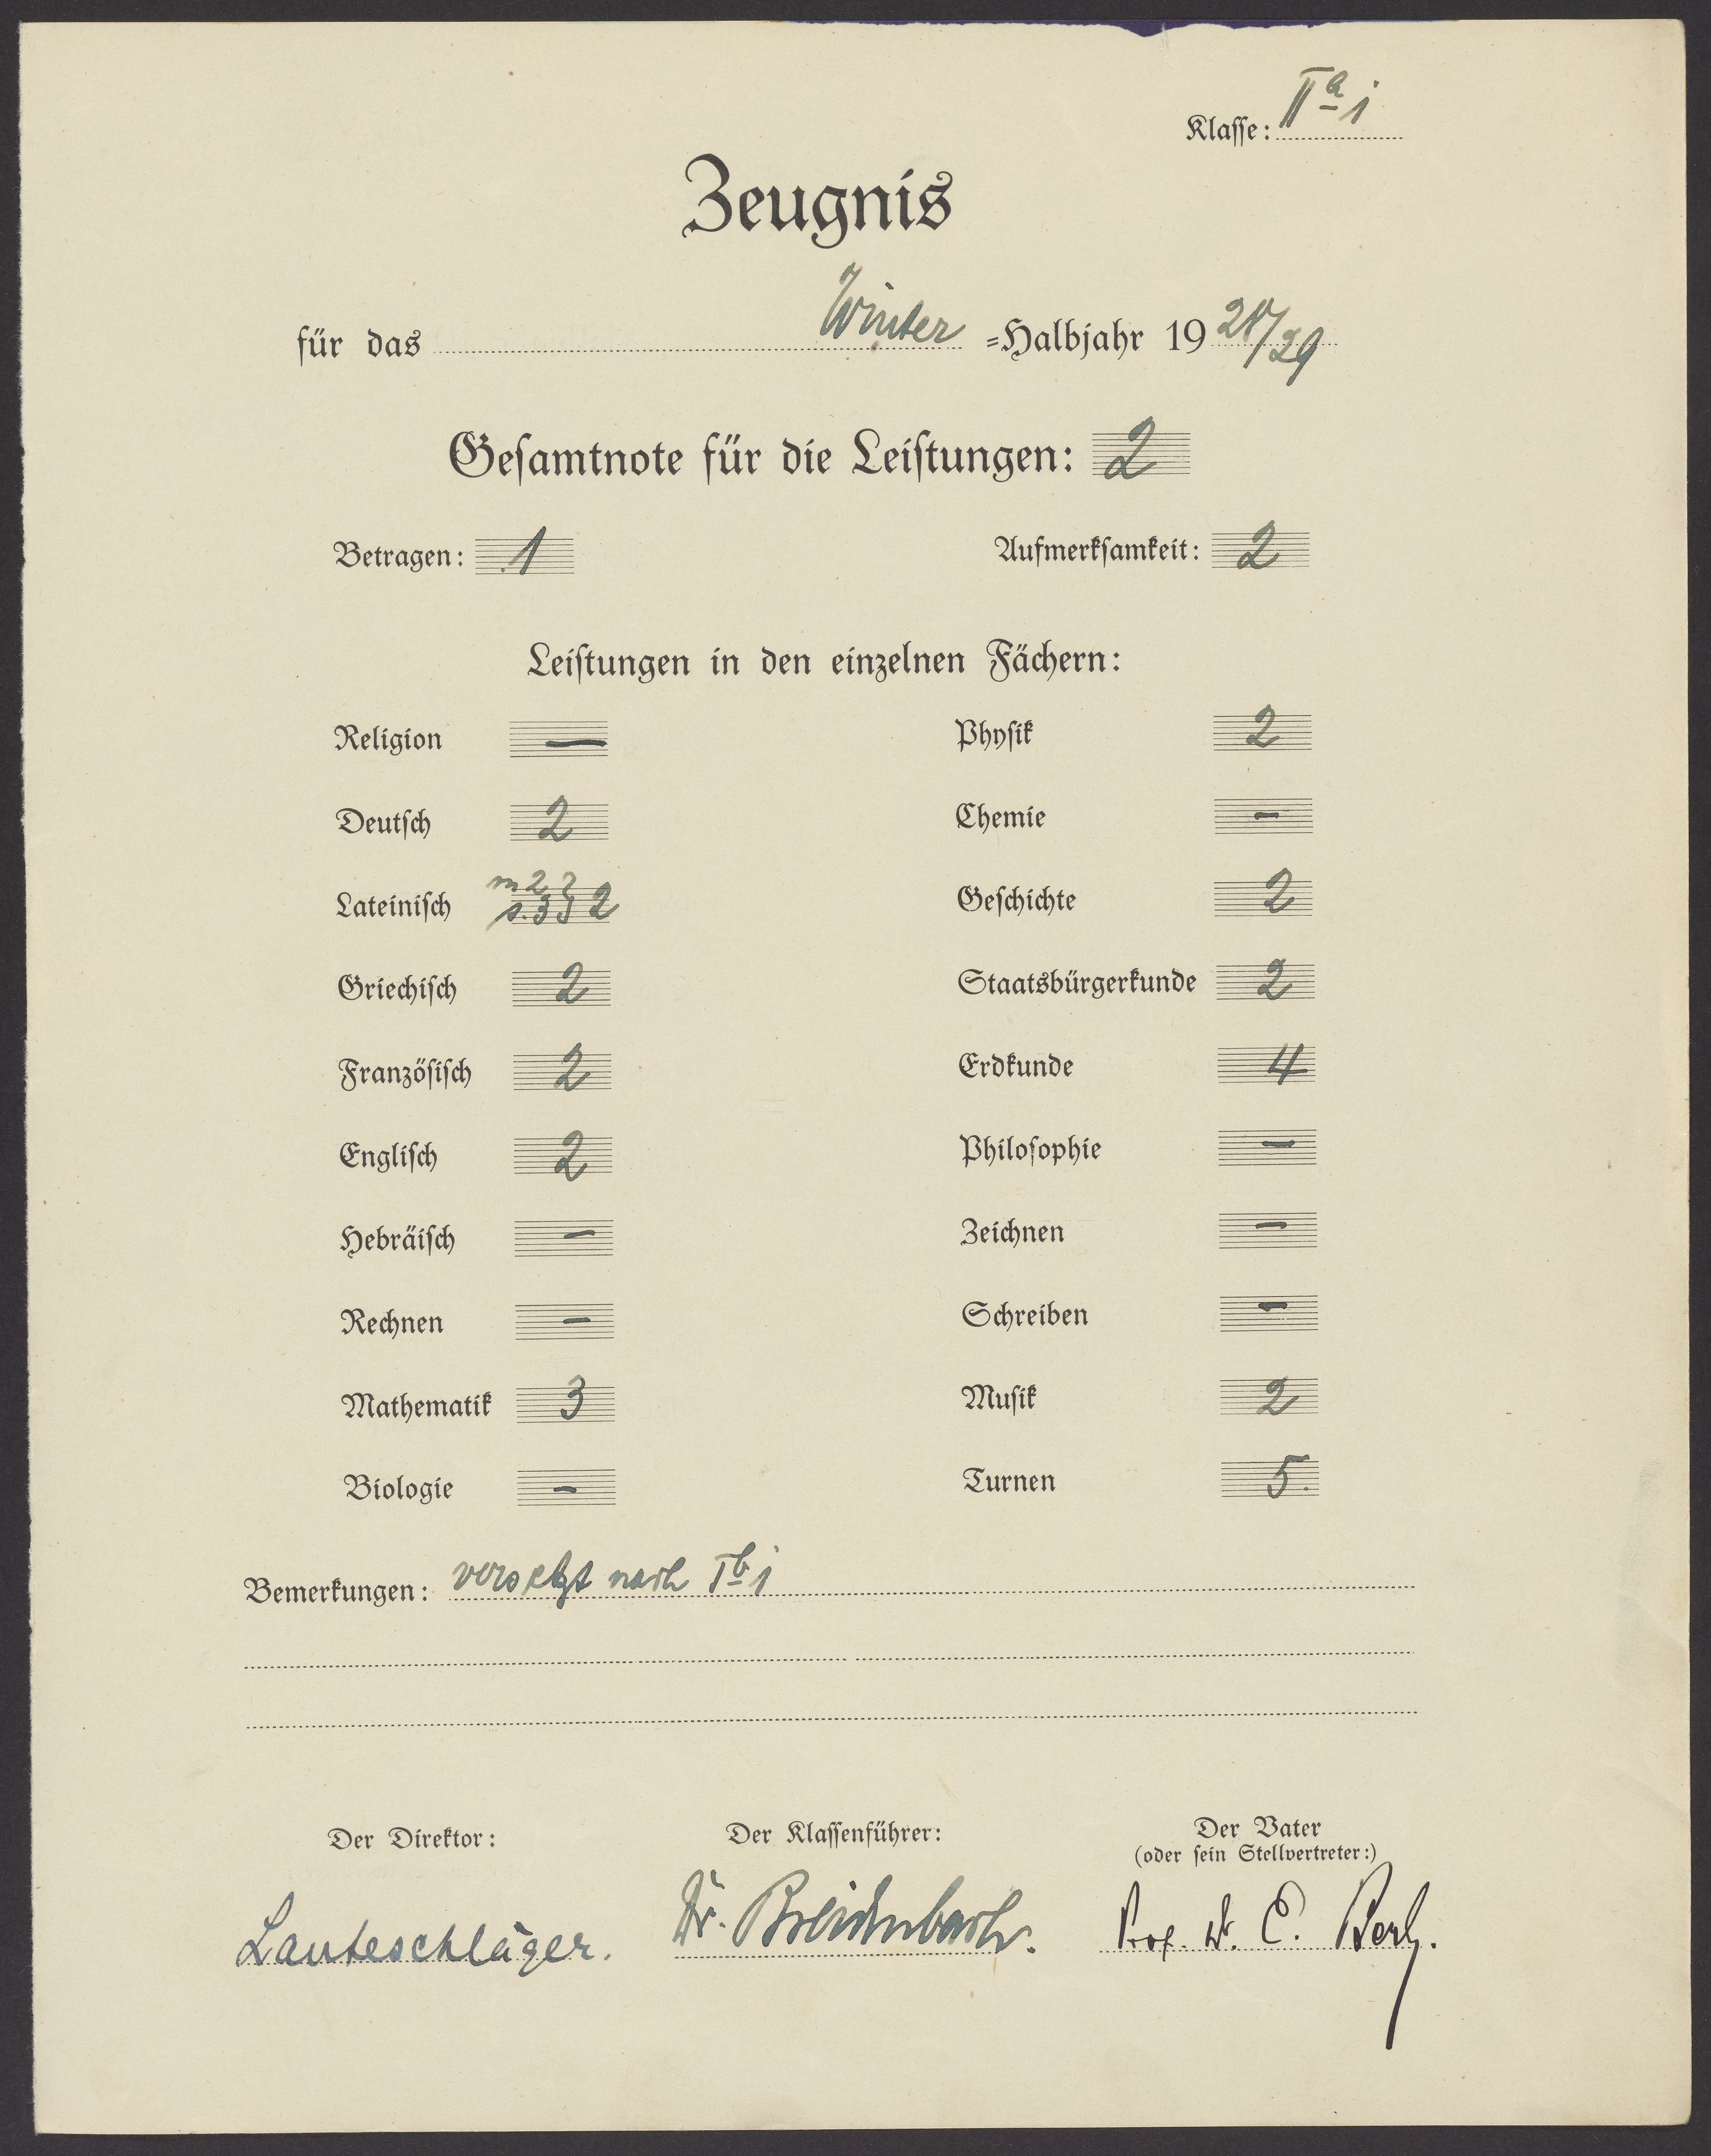 Klasse: IIa i
Zeugnis
für das Winter =Halbjahr 1928/29
Gesamtnote für die Leistungen: 2
Betragen: 1 Aufmerksamkeit: 2
Leistungen in den einzelnen Fächern:
Religion — Physik 2
Deutsch 2 Chemie —
m 2
Lateinisch s. 3 2 Geschichte 2
Griechisch 2 Staatsbürgerkunde 2
Französisch 2 Erdkunde 4
Englisch 2 Philosophie —
Hebräisch — Zeichnen —
Rechnen — Schreiben —
Mathematik 3 Musik 2
Biologie — Turnen 5.
Bemerkungen: versetzt nach Ib i
Der Direktor: Der Klassenführer: Der Vater
(oder sein Stellvertreter:)
Lauteschläger. Dr. Breidenbach. Prof. Dr. E. Berl.